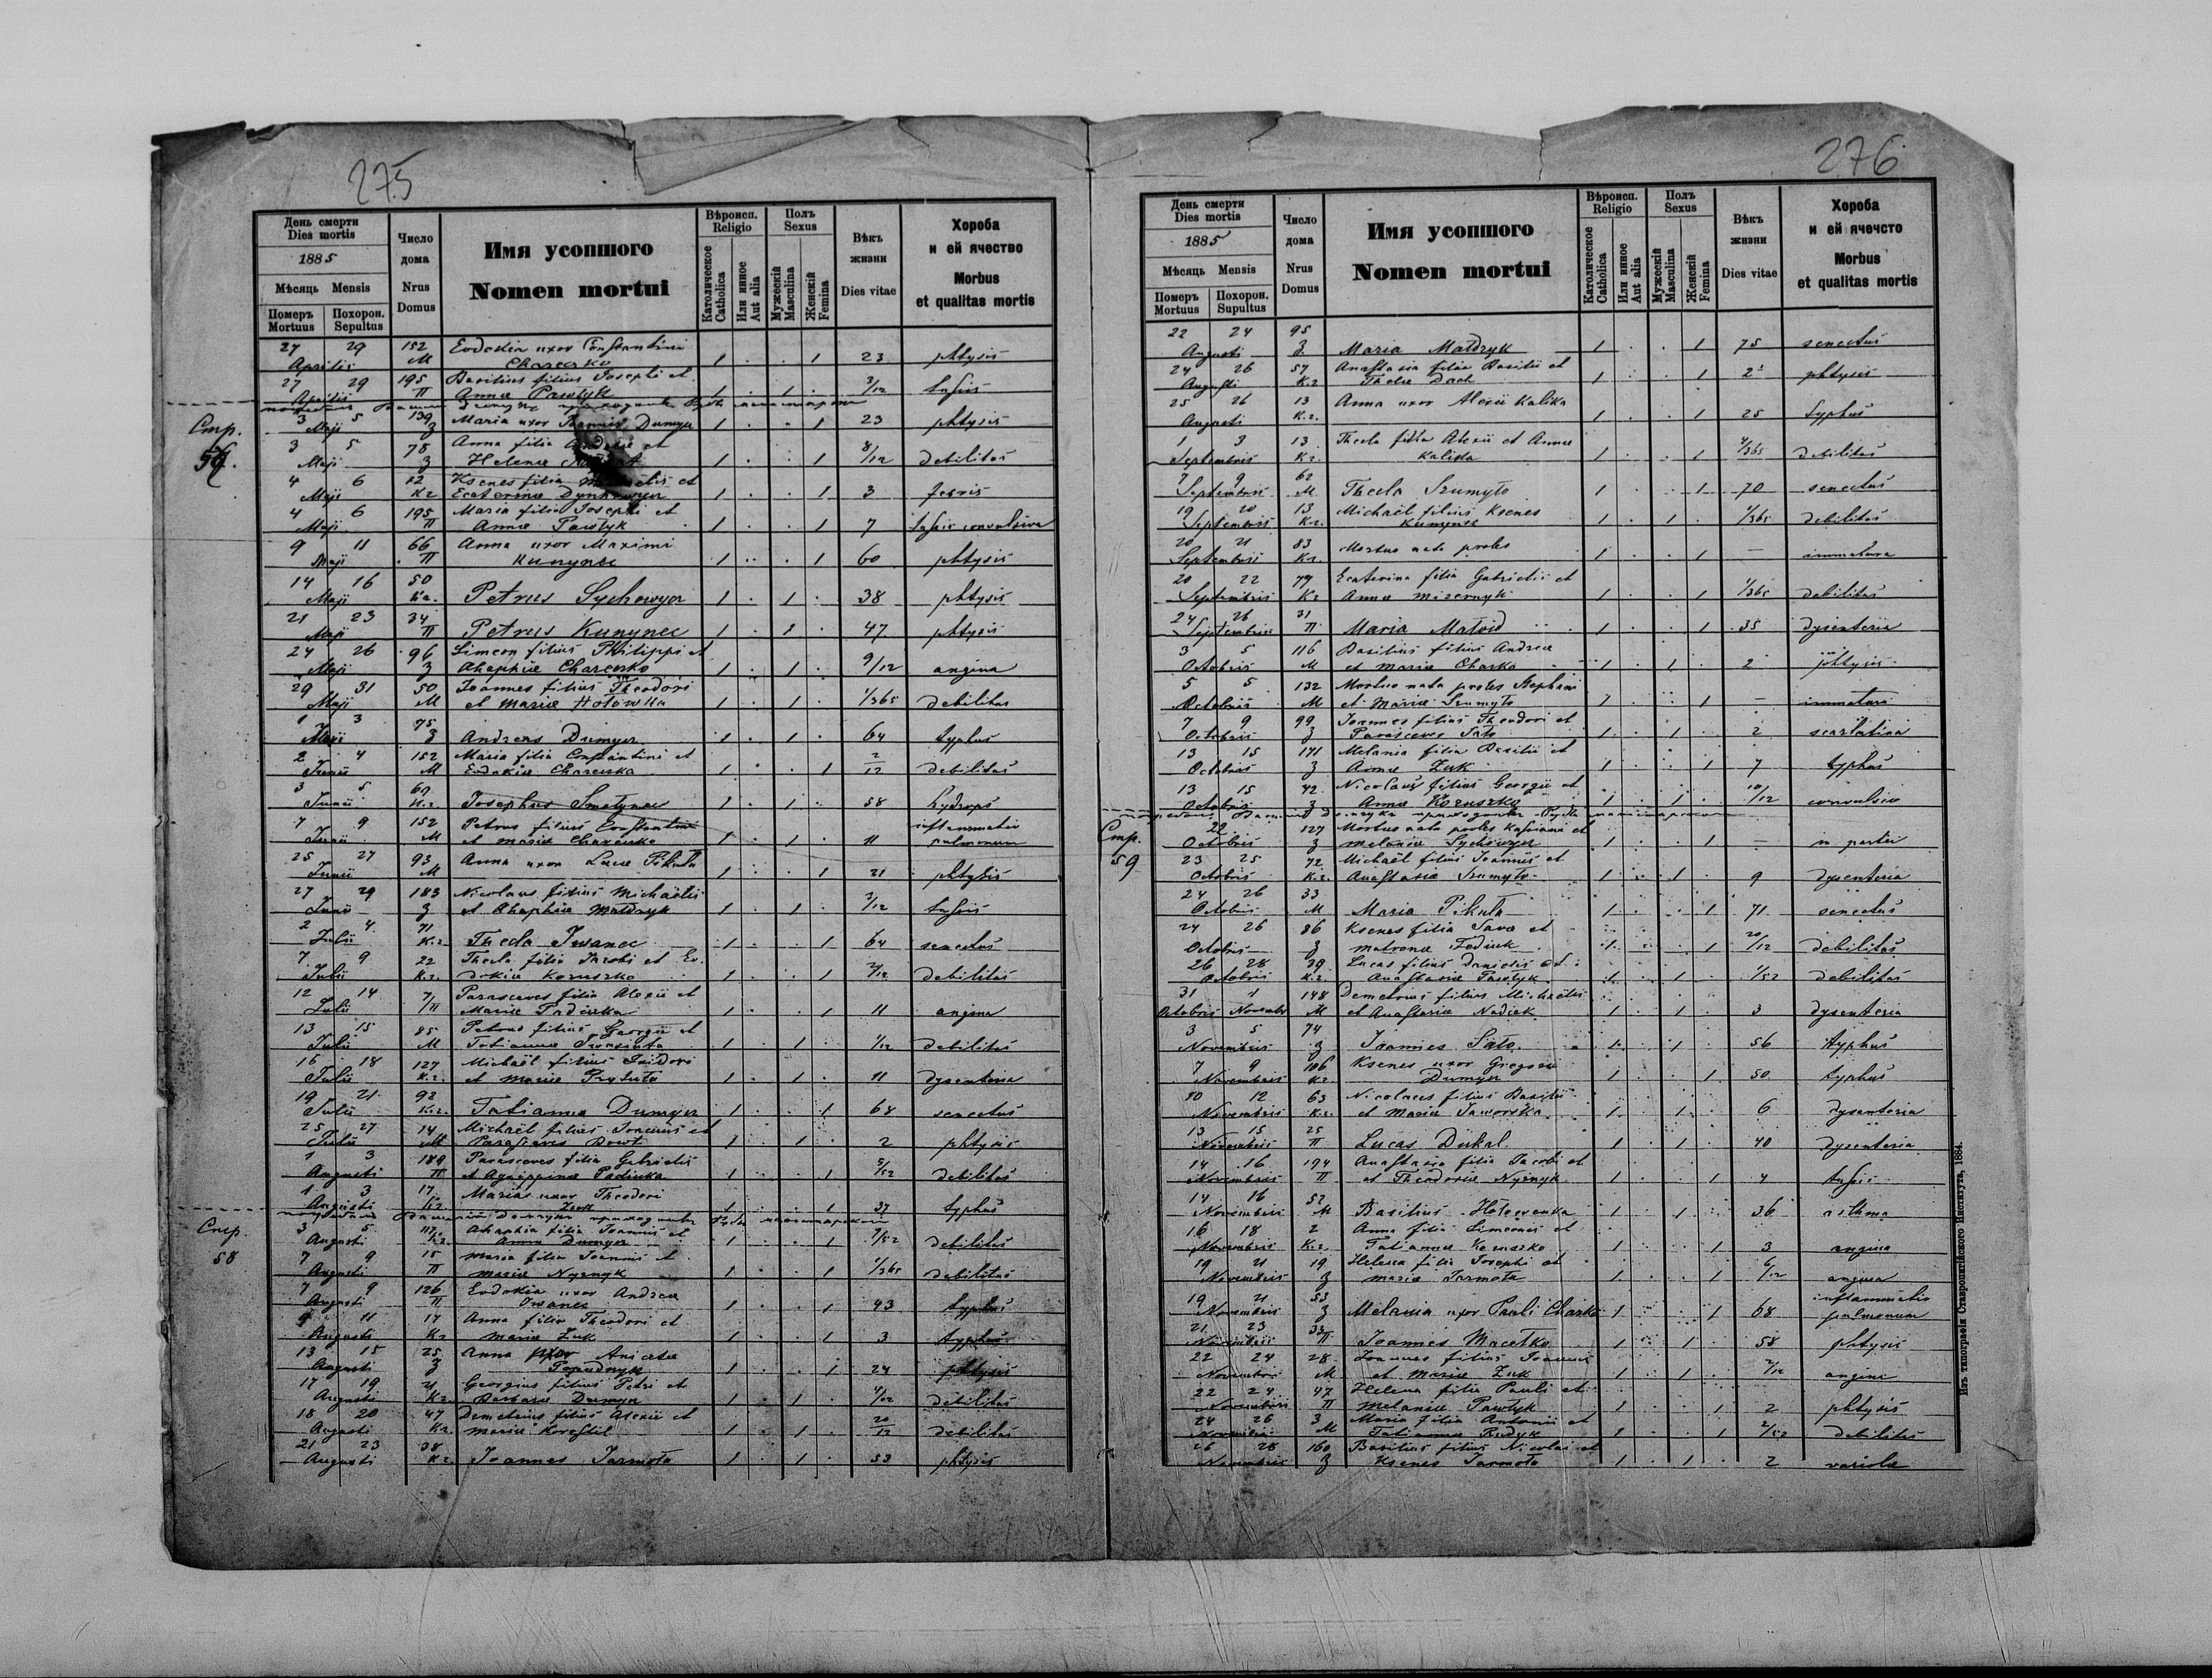 275
День смерти
Dies mortis
1885
Мѣсяць Mensis
Померъ Mortuus
Похорон. Sepultus
Число дома
Nrus Domus
Имя усопшого
Nomen mortui
Вѣроисп.
Religio
Католическое Catholica
Или инное Aut alia
Полъ
Sexus
Мужескій Masculina
Женскій Femina
Вѣкъ жизни
Dies vitae
Хороба
и ей ячество
Morbus
et qualitas mortis
27 29 152 Evdokia uxor Constantini
Aprilis M Charewko 1 . . 1 23 phtysis
27 29 195 Basilius filius Josephi et
Aprilis П Annae Pawlyk 1 . 1 . 3/12 tussis
Стр.
3 5 139 Maria uxor Joannis Dumyn 1 . . 1 23 phtysis
Maji З
3 5 78 Anna filia et
Maji З Helenae 1 . . 1 8/12 debilitas
4 6 12 Ksenes filia et
Maji Кг Ecaterinae 1 . . 1 3 febris
4 6 195 Maria filia Josephi et
Maji П Annae Pawlyk 1 . . 1 7 tussis convulsiva
9 11 66 Anna uxor Maximi
Maji П Kunynec 1 . . 1 60 phtysis
14 16 50
Maji Кг. Petrus Sychowyn 1 . 1 . 38 phtysis
21 23 34
Maji П Petrus Kunynec 1 . 1 . 47 phtysis
24 26 96 Simeon filius Philippi et
Maji З Ahaphiae Charewko 1 . 1 . 9/12 angina
29 31 50 Joannes filius Theodori
Maji M et Mariae Holowka 1 . 1 . 1/365 debilitas
1 3 75
З Andreas Dumyn 1 . 1 . 64 typhus
2 4 152 Maria filia Constantini et
Junii M Evdokiae Charewka 1 . . 1 2/12 debilitas
3 5 69
Junii Кг. Josephus Smolynec 1 . 1 . 58 hydrops
7 9 152 Petrus filius Constantini inflammatio
Junii M et Mariae Charewko 1 . 1 . 11 pulmonum
25 27 93 Anna uxor Lucae Pikula
Junii M 1 . . 1 21 phtysis
27 29 183 Nicolaus filius Michaëlis
Junii З et Ahaphiae Matdryk 1 . 1 . 2/12 tussis
2 4 71
Julii Кг. Thecla Iwanec 1 . . 1 64 senectus
7 9 22 Thecla filia Jacobi et Ev.
Julii Кг. dokiae Koruszko 1 . . 1 debilitas
12 14 71 Parasceves filia Alexii et
Julii П Mariae Padiuka 1 . . 1 11 angina
13 15 85 Petrus filius Georgii et
Julii M Tatiannae 1 . 1 . 1/12 debilitas
16 18 127 Michaël filius Isidori
Julii Кг. et Mariae Prytuła 1 . 1 . 11 dysenteria
19 21 92
Julii Кг. Tatianna Dumyn 1 . . 1 68 senectus
25 27 14 Michaël filius Joannis et
Julii M Parasceves 1 . 1 . 2 phtysis
1 3 189 Parasceves filia Gabrielis
Augusti П et Agrippinae Padiuka 1 . . 1 5/52 debilitas
1 3 17 Maria uxor Theodori
Augusti Кг Zuk 1 . . 1 37 typhus
Стр.
58
3 5 Ahaphia filia Joannis et
Augusti Кг. Annae Dumyn 1 . . 1 debilitas
7 9 15 Maria filia Joannis et
Augusti П Mariae Nyznyk 1 . . 1 1/365 debilitas
7 9 126 Evdokia uxor Andreae
Augusti П Iwanec 1 . . 1 43 typhus
9 11 17 Anna filia Theodori et
Augusti Кг Mariae Zuk 1 . . 1 3 typhus
13 15 25 Anna uxor
Augusti З 1 . . 1 24 phtysis
17 19 21 Georgius filius Petri et
Augusti Кг. Barbarae Dumyn 1 . 1 . debilitas
18 20 47 Demetrius filius Alexii et
Augusti Кг. Mariae Korestil 1 . 1 . 20/12 debilitas
21 23 38
Augusti Кг. Joannes Jarmola 1 . 1 . 53 phtysis
276
День смерти
Dies mortis
1885
Мѣсяць Mensis
Померъ Mortuus
Похорон. Supultus
Число дома
Nrus Domus
Имя усопшого
Nomen mortui
Вѣроисп.
Religio
Католическое Catholica
Или инное Aut alia
Полъ
Sexus
Мужескій Masculina
Женскій Femina
Вѣкъ жизни
Dies vitae
Хороба
и ей ячечсто
Morbus
et qualitas mortis
22 24 95
Augusti З Maria Matdryk 1 . . 1 75 senectus
24 26 57 Anastasia filia Basilii et
Augusti Кг Theclae 1 . . 1 2 phtysis
25 26 13 Anna uxor Alexii Kalika
Augusti Кг. 1 . . 1 25 typhus
1 3 13 Thecla filia Alexii et Annae
Septembris Кг. Kalika 1 . . 1 4/365 debilitas
7 9 62
Septembris M Thecla Szumyło 1 . . 1 70 senectus
19 20 13 Michaël filius Ksenes
Septembris Кг. Kunynec 1 . 1 . 1/365 debilitas
20 21 83 Mortua nata proles
Septembris Кг. 1 . . 1 — immatura
20 22 79 Ecaterina filia Gabrielis et
Septembris Кг Annae Mizernyk 1 . . 1 1/365 debilitas
24 26 31
Septembris П Maria Matvid 1 . . 1 35 dysenteria
3 5 116 Basilius filius Andreae
Octobris M et Mariae Charko 1 . 1 . 2 phtysis
5 5 132 Mortuo nata proles Stephani
Octobris M et Mariae Szumyło 1 . . 1 — immatura
7 9 99 Joannes filius Theodori et
Octobris З Parasceves Sato 1 . 1 . 2 scarlatina
13 15 171 Melania filia Basilii et
Octobris З Annae Zuk 1 . . 1 7 typhus
13 15 42 Nicolaus filius Georgii et
Octobris З Annae Koruszko 1 . 1 . 10/12 convulsio
Стр.
59
22 127 Mortuo nata proles et
Octobris З Melaniae Sychowyn 1 . . 1 — in partu
23 25 72 Michaël filius Joannis et
Octobris Кг. Anastasiae Szumyło 1 . 1 . 9 dysenteria
24 26 33
Octobris M Maria Pikula 1 . . 1 71 senectus
24 26 86 Ksenes filia Savae et
Octobris З Matronae Fediuk 1 . . 1 20/12 debilitas
26 28 39 Lucas filius Danielis et
Octobris Кг. Anastasiae Pawlyk 1 . 1 . 1/52 debilitas
31 1 148 Demetrius filius Michaëlis
Octobris Novembr M et Anastasiae Nadiak 1 . 1 . 3 dysenteria
3 5 74
Novembris З Joannes Sato 1 . 1 . 56 typhus
7 9 106 Ksenes uxor Gregorii
Novembris Кг Dumyn 1 . . 1 50 typhus
10 12 63 Nicolaus filius Basilii
Novembris Кг. et Mariae Jaworska 1 . 1 . 6 dysenteria
13 15 25
Novembris П Lucas Dukal 1 . 1 . 40 dysenteria
14 16 194 Anastasia filia Jacobi et
Novembris П et Theodoriae Nyznyk 1 . . 1 4 tussis
14 16 52
Novembris M Basilius Holowenka 1 . 1 . 36 asthma
16 18 2 Anna filia Simeonis et
Novembris Кг. Tatiannae Koruszko 1 . . 1 3 angina
19 21 19 Helena filia Josephi et
Novembris З Mariae Jarmola 1 . . 1 6/12 angina
19 21 53 inflammatio
Novembris З Melania uxor Pauli Charko 1 . . 1 68 pulmonum
21 23 33
Novembris П Joannes Macelko 1 . 1 . 58 phtysis
22 24 28 Joannes filius Joannis
Novembris M et Mariae Zuk 1 . 1 . 2/12 angina
22 24 47 Helena filia Pauli et
Novembris П Melaniae Pawlyk 1 . . 1 2 phtysis
24 26 3 Maria filia Antonii et
Novembris M Tatiannae Rudyk 1 . . 1 2/52 debilitas
26 28 160 Basilius filius Nicolai et
Novembris З Ksenes Jarmola 1 . 1 . 2 variolae
Изъ типографіи Ставропигійского Института, 1884.